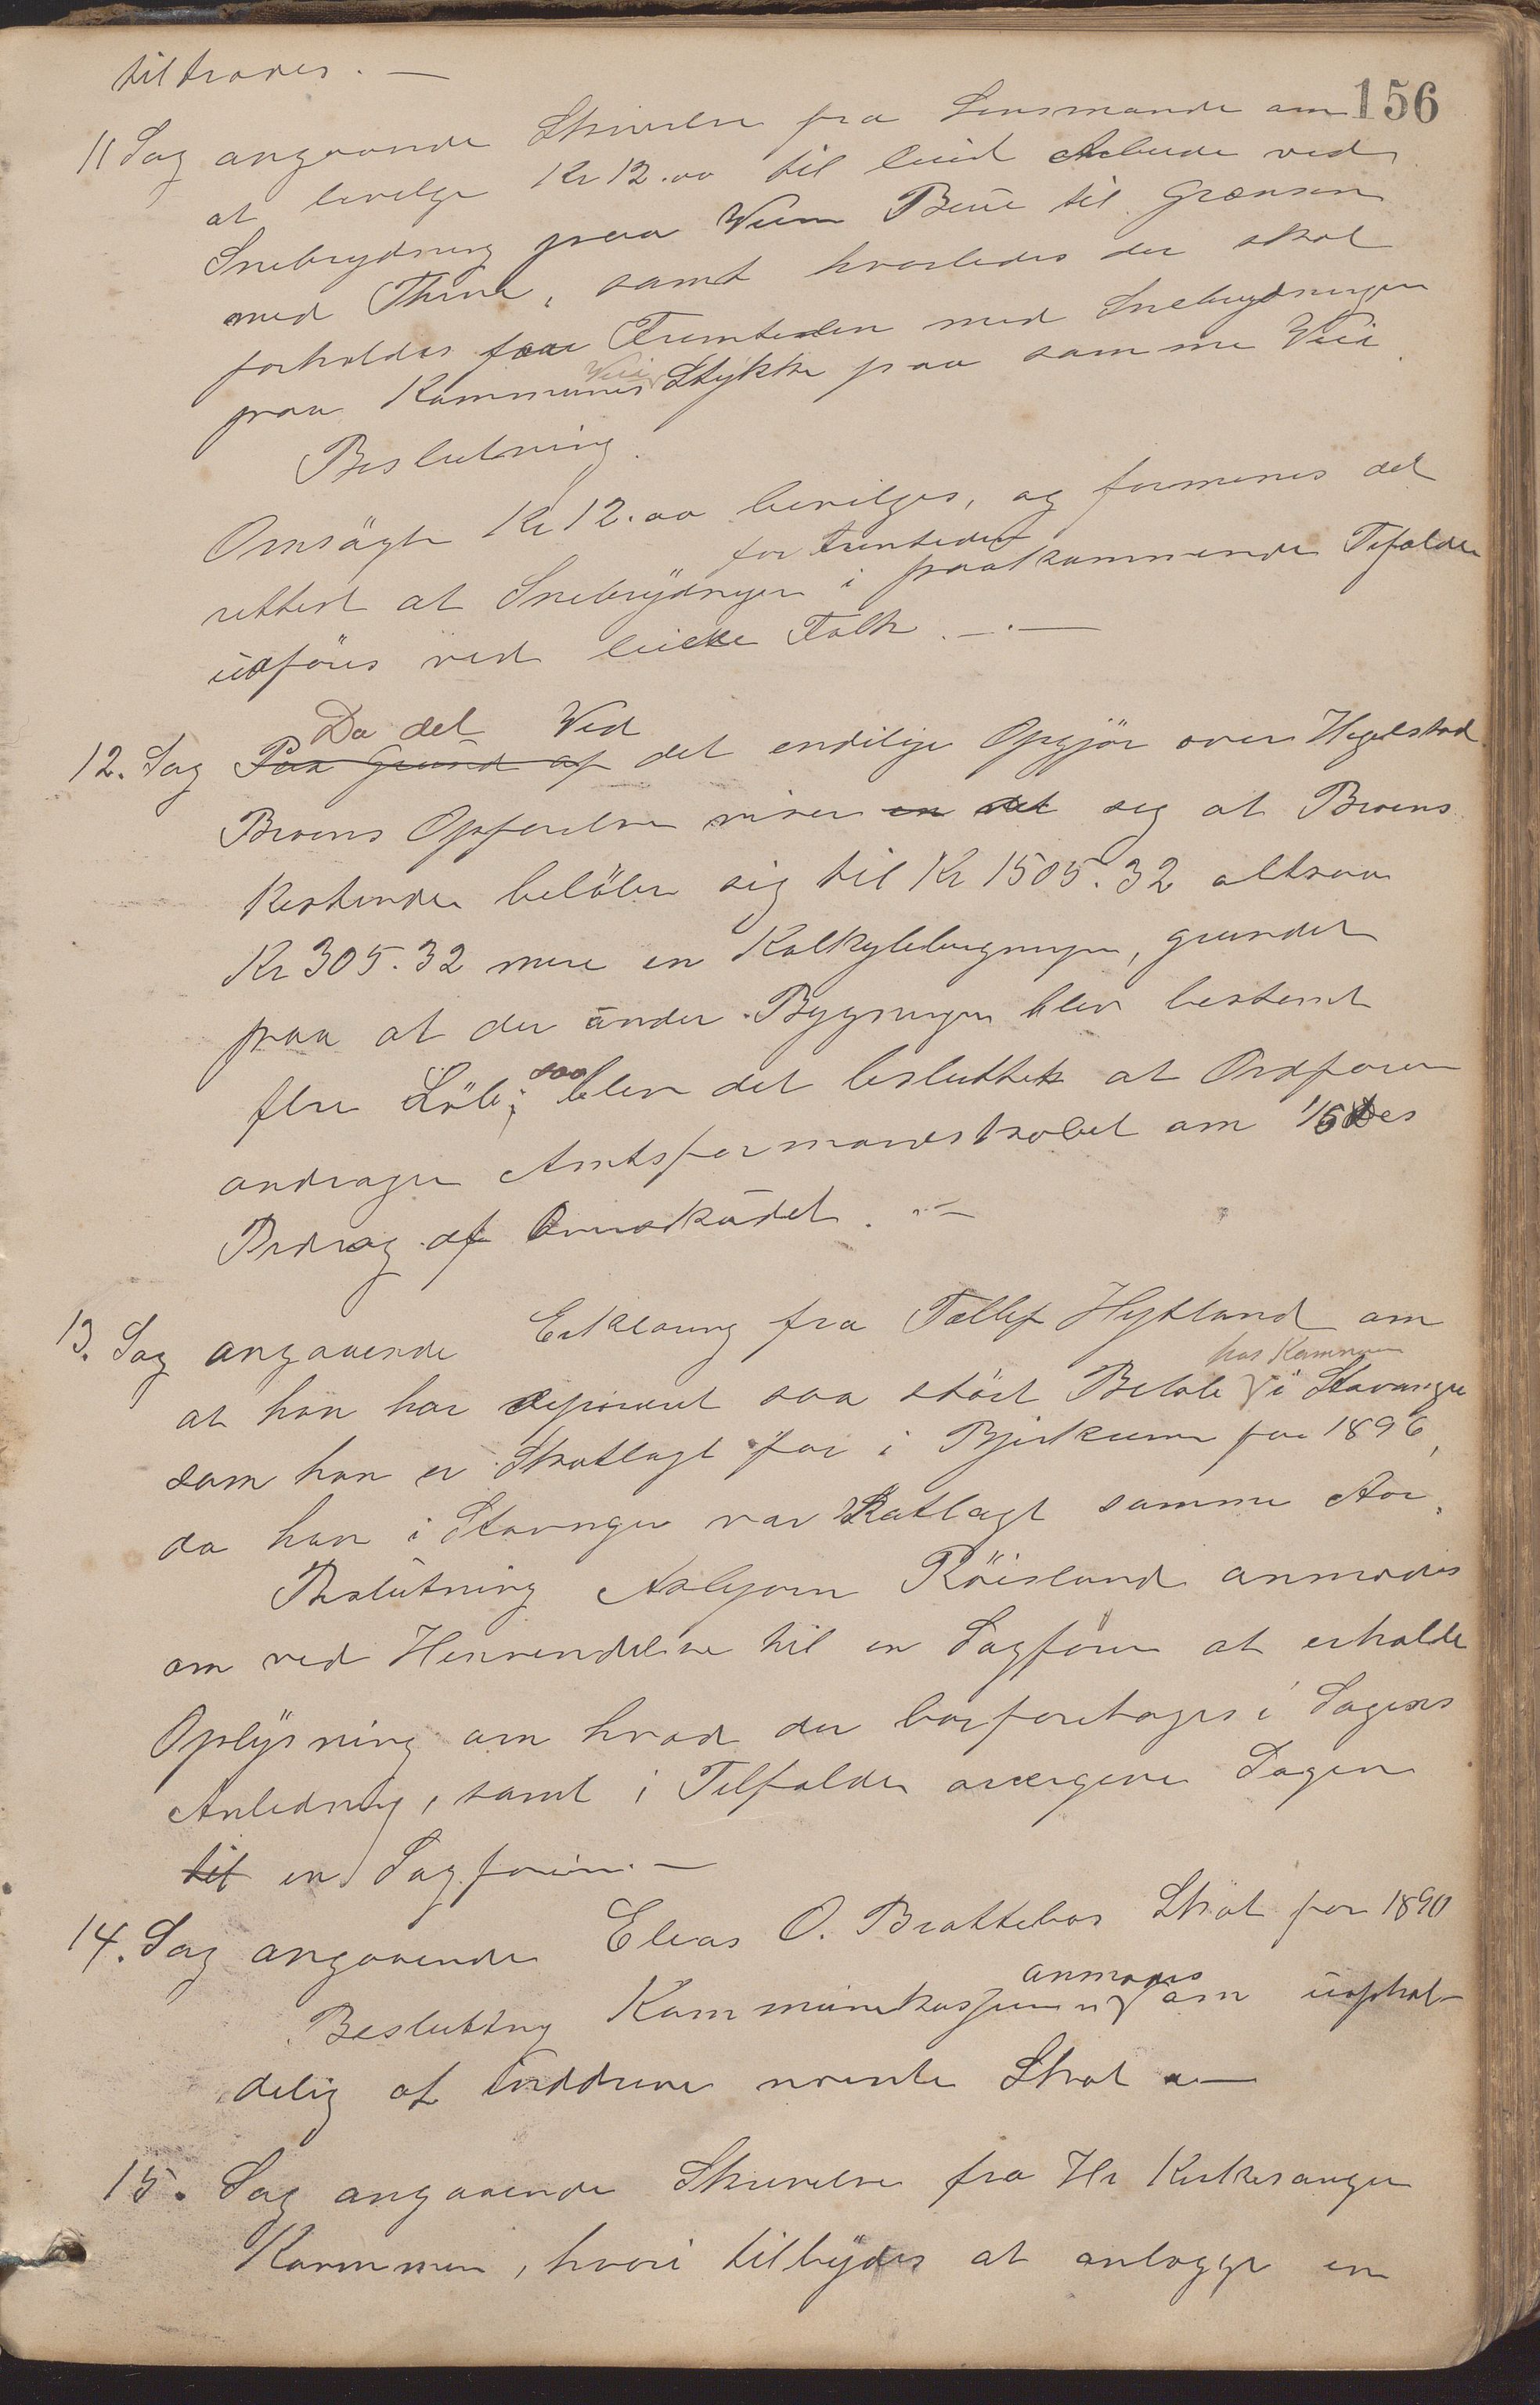 tiltrædes. —
156
11 Sag angaaende Skrivelse fra Lensmanden om
at bevilge Kr 12.00 til leiet Arbeide ved
Snebrydning paa Veien Birie til Grænsen
med Thime, samt hvorledes der skal
forholdes for Fremtiden med Snebrydningen
paa Kommunens Vei Stykke paa samme Vei.
Beslutning.
Omsøgte Kr 12.00 bevilges, og formenes det
rettest at Snebrydnigen for fremtiden i paakommende Tifælde
udføres ved leiede Folk. —.—
12. Sag Da det Ved
Paa Grund af det endelige Opgjør over Hegelstad
Broens Opførelse viser en det sig at Broens
Kostender beløber sig til Kr 1505.32 altsaa
Kr 305.32 mere en Kalkylebergnigen, grundet
paa at der under Bygningen blev bestemt
flere Løb; saa blev det besluttet at Ordføren
andrager Amtsformandskabet om 1/5 des
Bidrag af Overskudet. —
13. Sag angaaende Erklæring fra Tollef Hytland om
at han har deponeret saa stort Beløb hos Kemneren i Stavanger
som han er Skatlagt for i Bjerkreim for 1896,
da han i Stavnger var Skatlagt samme Aar.
Beslutning Asbjørn Røisland anmodes
om ved Henvendelse til en Sagfører at erholde
Oplysning om hvad der bør foretages i Sagens
Anledning, samt i Tilfælde overgive Sagen
til en Sagfører. —
14. Sag angaaende Elias O. Brattebøs Skat for 1890
Beslutting Kommunekasseren anmodes om uophol-
delig at inddrive nevnte Skat. —
15. Sag angaaende Skrivelse fra Hr Kirkesanger
Kommen, hvori tilbydes at anlægge en